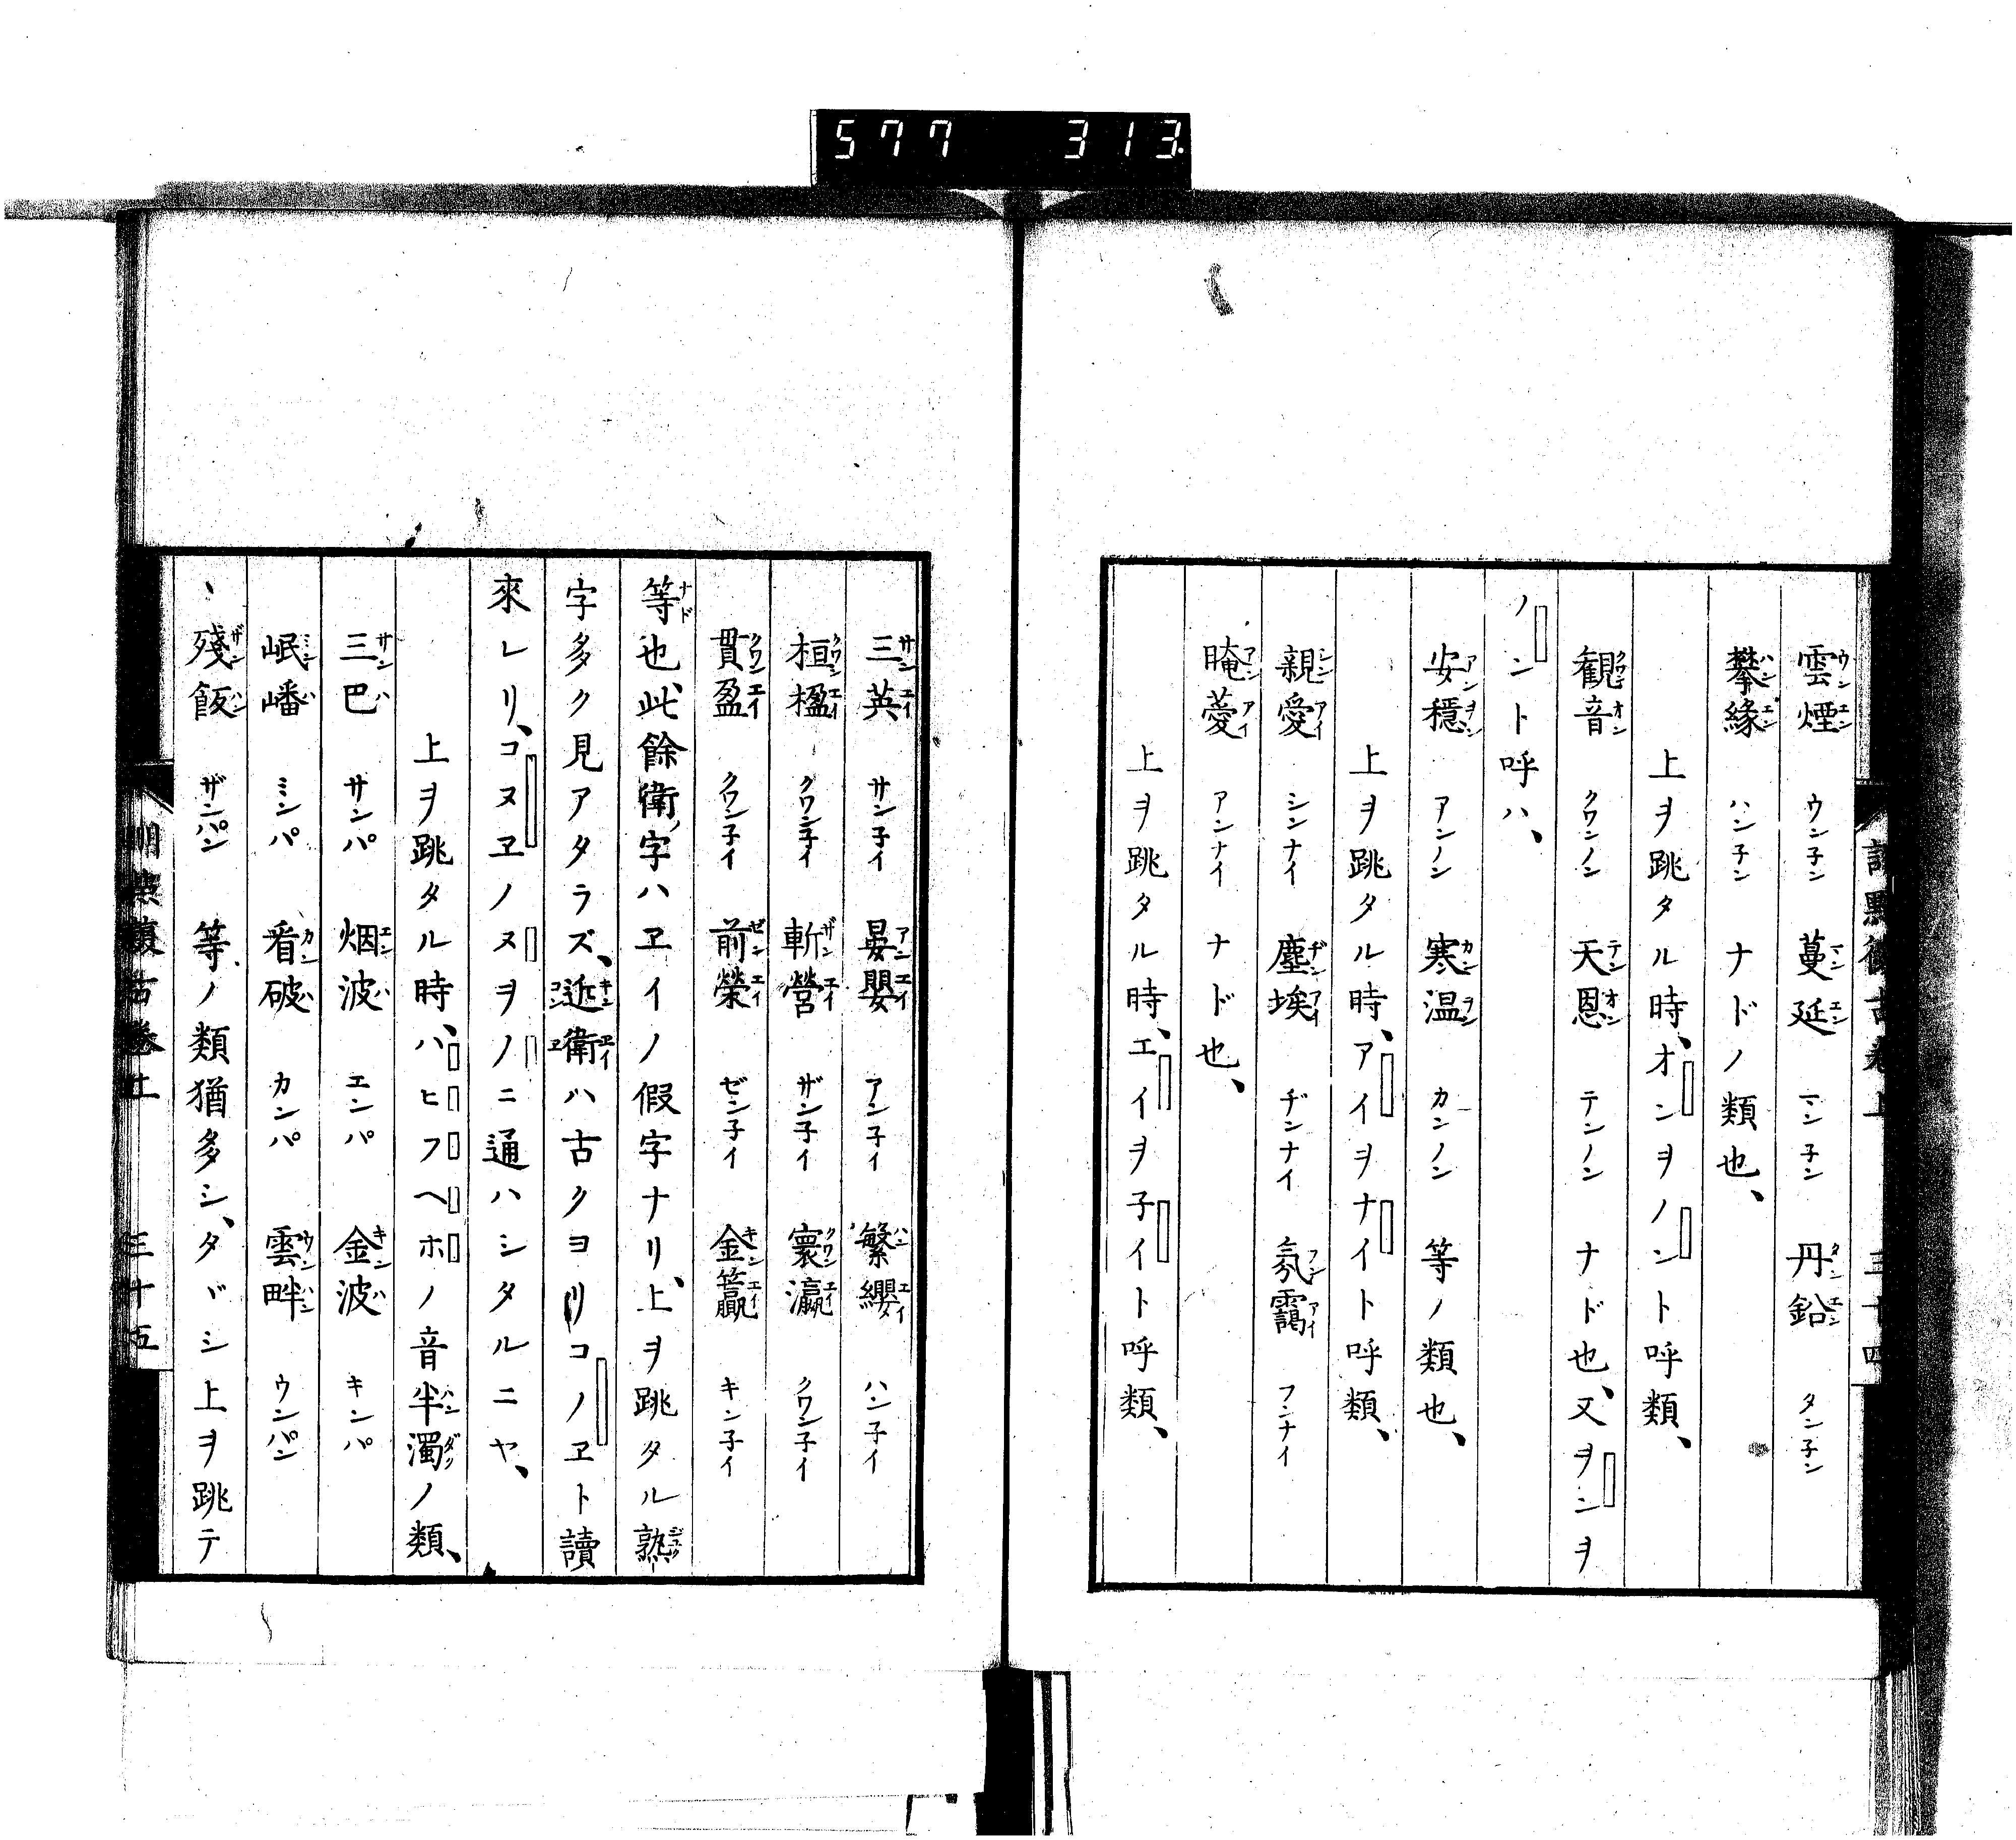 577 313.
雲煙 ウン子ン 蔓延 マン子ン 丹鉛 タン子ン
攀緣 ハン子ン ナドノ類也、
上ヲ跳タル時、オンヲノント呼類、
観音 クワンノン 天恩 テンノン ナド也、又ヲンヲ
ノント呼ハ、
安穩 アンノン 寒温 カンノン 等ノ類也、
上ヲ跳タル時、アイヲナイト呼類、
親愛 シンナイ 塵埃 ヂンナイ 氛靄 フンナイ
晻薆 アンナイ ナド也、
上ヲ跳タル時、エイヲ子イト呼類、
三英 サン子イ 晏嬰 アン子イ 繁纓 ハン子イ
桓楹 クワン子イ 斬營 ザン子イ 寰瀛 クワン子イ
貫盈 クワン子イ 前榮 ゼン子イ 金籯 キン子イ
等也、此餘衛ノ字ハヱイノ假字ナリ、上ヲ跳タル熟
字多ク見アタラズ、近衛ハ古クヨリコノヱト讀
來レリ、コヌヱノヌヲノニ通ハシタルニヤ、
上ヲ跳タル時、ハヒフヘホノ音半濁ノ類、
三巴 サンパ 烟波 エンパ 金波 キンパ
岷嶓 ミンパ 看破 カンパ 雲畔 ウンパン
殘飯 ザンパン 等ノ類猶多シ、タヾシ上ヲ跳テ
三十五